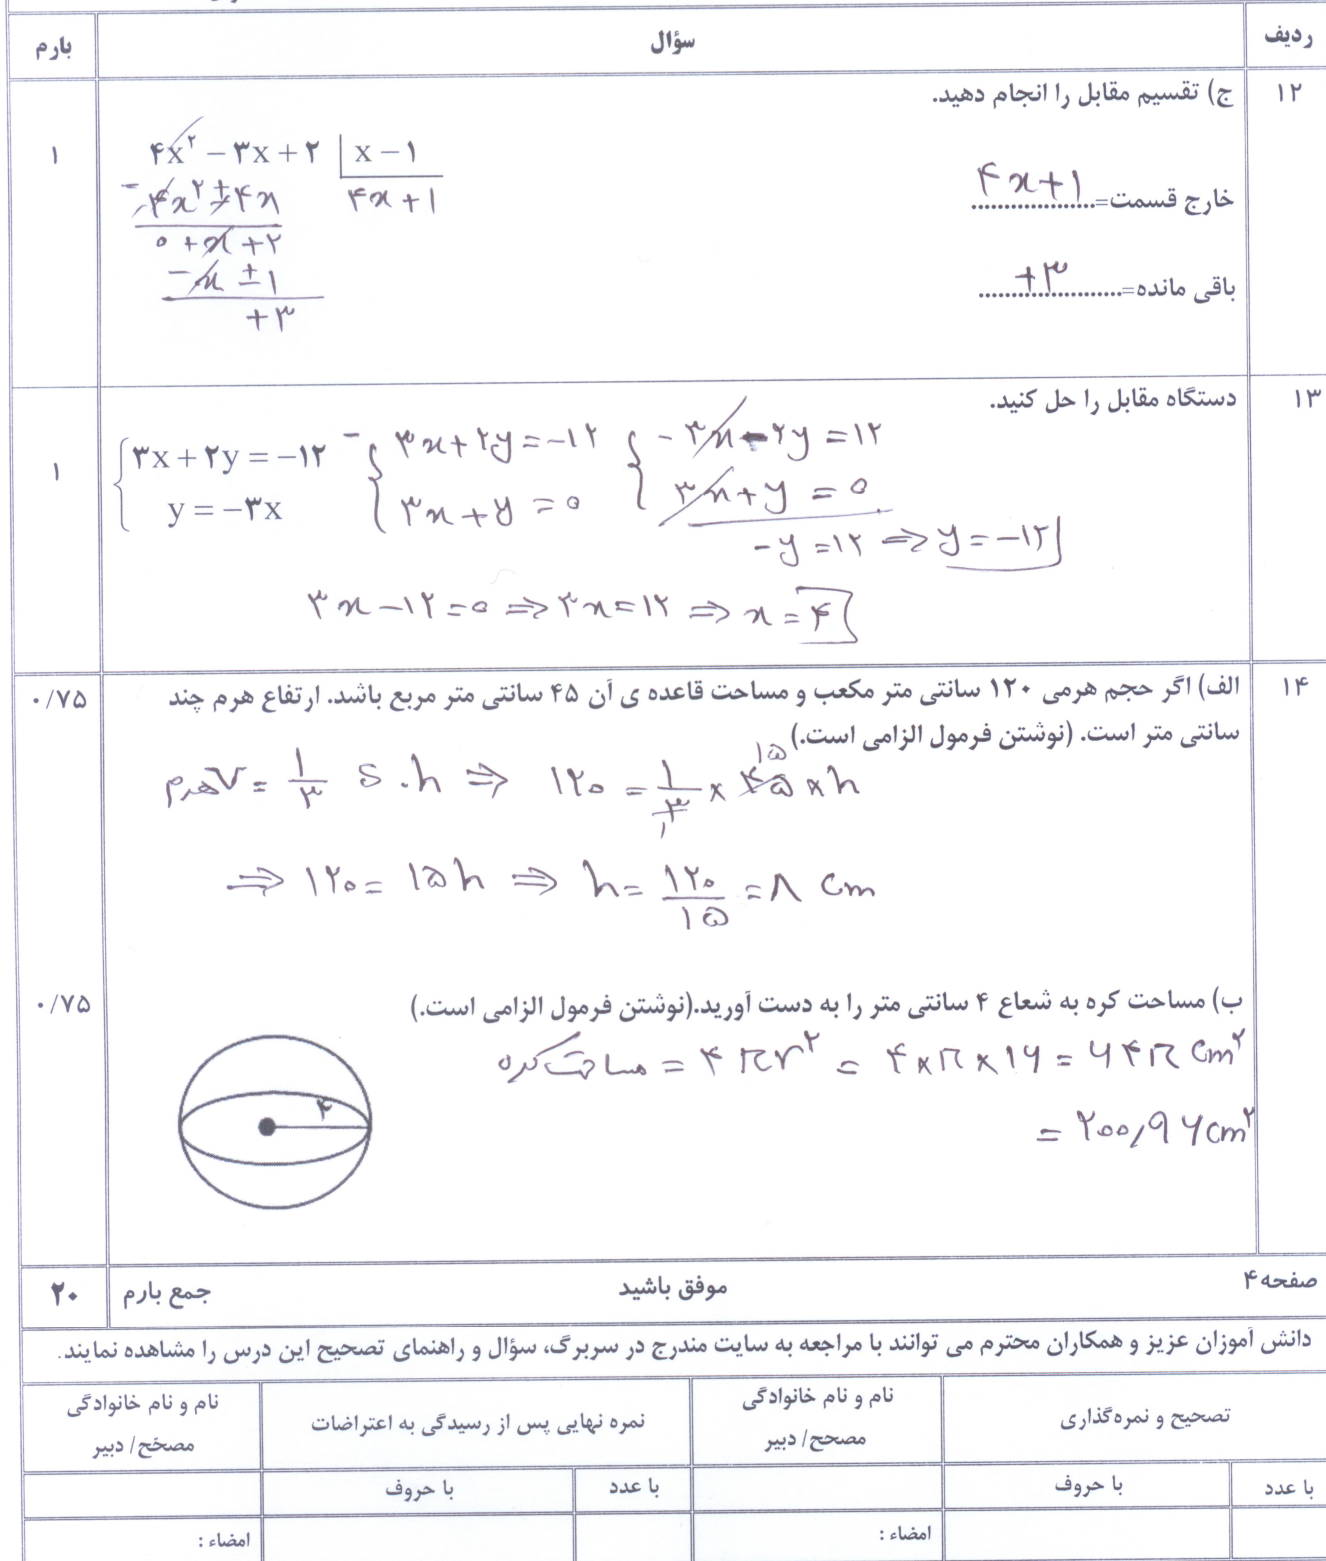 ردیف سؤال بارم
۱۲ ج) تقسیم مقابل را انجام دهید. ۱
۴x² – ۳x + ۲ | x – ۱
-۴x² ±۴x ۴x + ۱
۰ + x + ۲
-x ± ۱
+۳
خارج قسمت=۴x+۱
باقی مانده=+۳
۱۳ دستگاه مقابل را حل کنید. ۱
{ ۳x + ۲y = –۱۲ -{ ۳x + ۲y = -۱۲ { -۳x - ۲y = ۱۲
y = –۳x ۳x + y = ۰ ۳x + y = ۰
-y = ۱۲ ⇒ y = -۱۲
۳x - ۱۲ = ۰ ⇒ ۳x = ۱۲ ⇒ x = ۴
۱۴ الف) اگر حجم هرمی ۱۲۰ سانتی متر مکعب و مساحت قاعده ی آن ۴۵ سانتی متر مربع باشد. ارتفاع هرم چند ۰/۷۵
سانتی متر است. (نوشتن فرمول الزامی است.)
۱۵
V هرم = ۱/۳ S . h ⇒ ۱۲۰ = ۱/۳ × ۴۵ × h
۱
⇒ ۱۲۰ = ۱۵h ⇒ h = ۱۲۰/۱۵ = ۸ cm
ب) مساحت کره به شعاع ۴ سانتی متر را به دست آورید.(نوشتن فرمول الزامی است.) ۰/۷۵
مساحت کره = ۴πr² = ۴×π×۱۶ = ۶۴π cm²
= ۲۰۰,۹۶ cm²
۴
صفحه ۴ موفق باشید جمع بارم ۲۰
دانش آموزان عزیز و همکاران محترم می توانند با مراجعه به سایت مندرج در سربرگ، سؤال و راهنمای تصحیح این درس را مشاهده نمایند.
تصحیح و نمره‌گذاری
نام و نام خانوادگی
مصحح/ دبیر
نمره نهایی پس از رسیدگی به اعتراضات
نام و نام خانوادگی
مصحّح/ دبیر
با عدد با حروف با عدد با حروف
امضاء : امضاء :